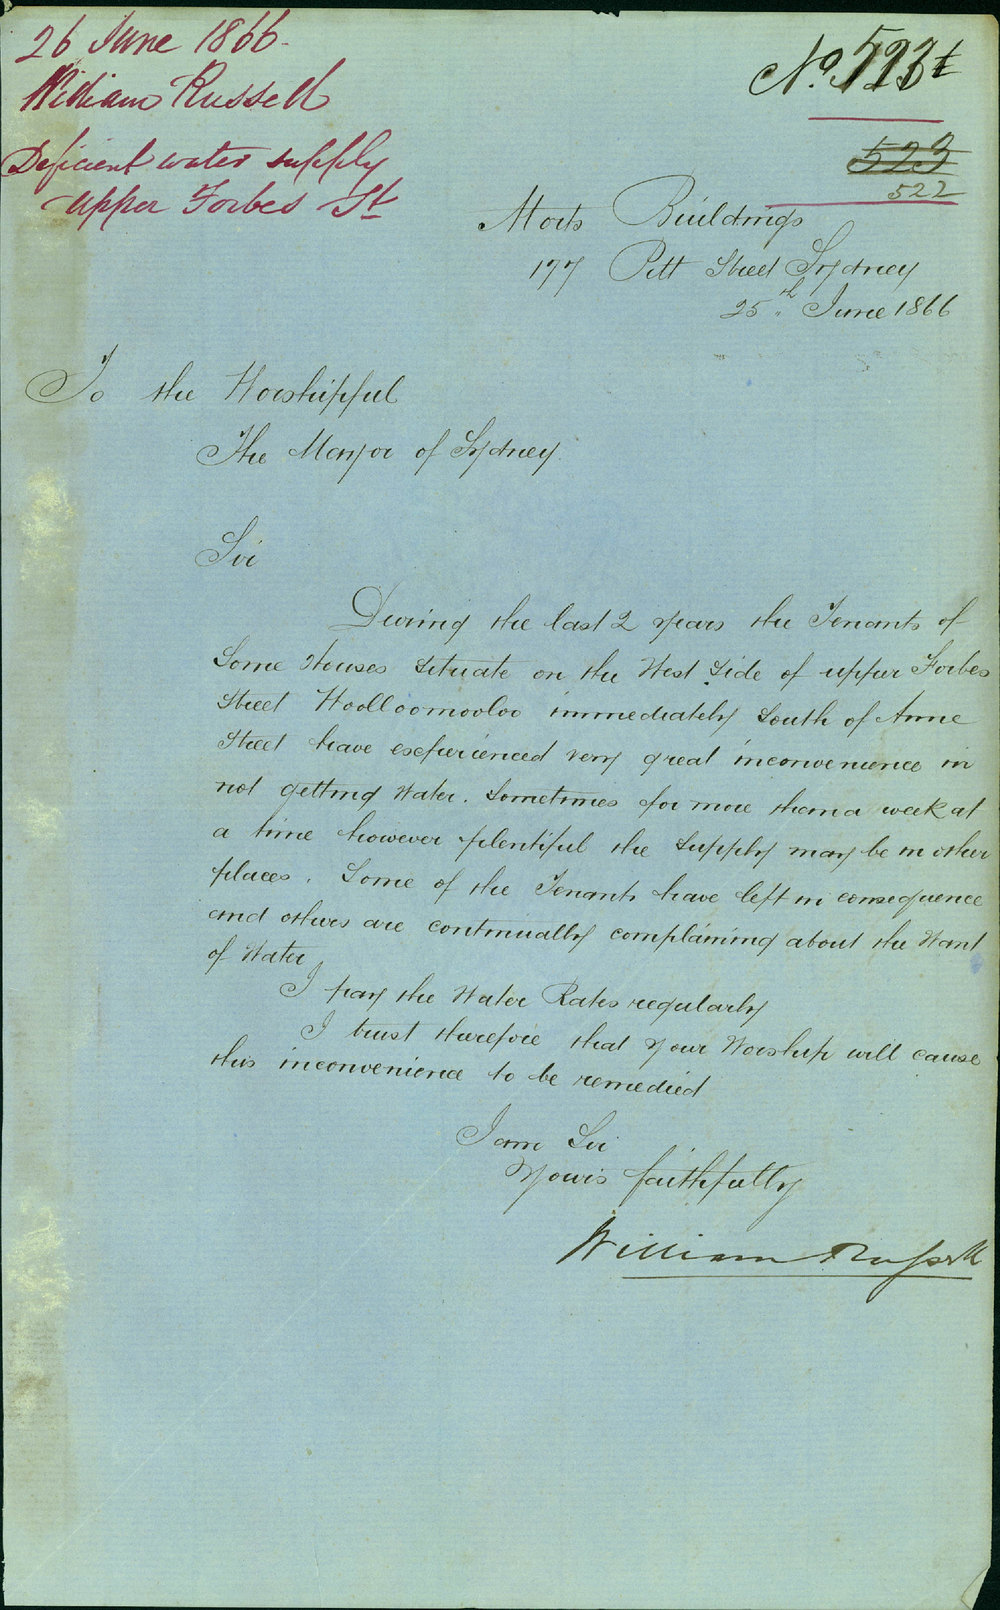 26 June 1866.
William Russell
Deficient water supply
upper Forbes St
No. 523
523
522
Morts Buildings
177 Pitt Street Sydney
25th June 1866
To the Worshipful
The Mayor of Sydney
Sir
During the last 2 years the Tenants of
Some Houses Situate on the West Side of upper Forbes
Street Woolloomooloo immediately South of Anne
Street have experienced very great inconvenience in
not getting Water. Sometimes for more than a week at
a time however plentiful the Supply may be in other
places. Some of the Tenants have left in consequence
and others are continually complaining about the Want
of Water
I pay the Water Rates regularly
I trust therefore that Your Worship will cause
this inconvenience to be remedied
I am Sir
Yours faithfully
William Russell